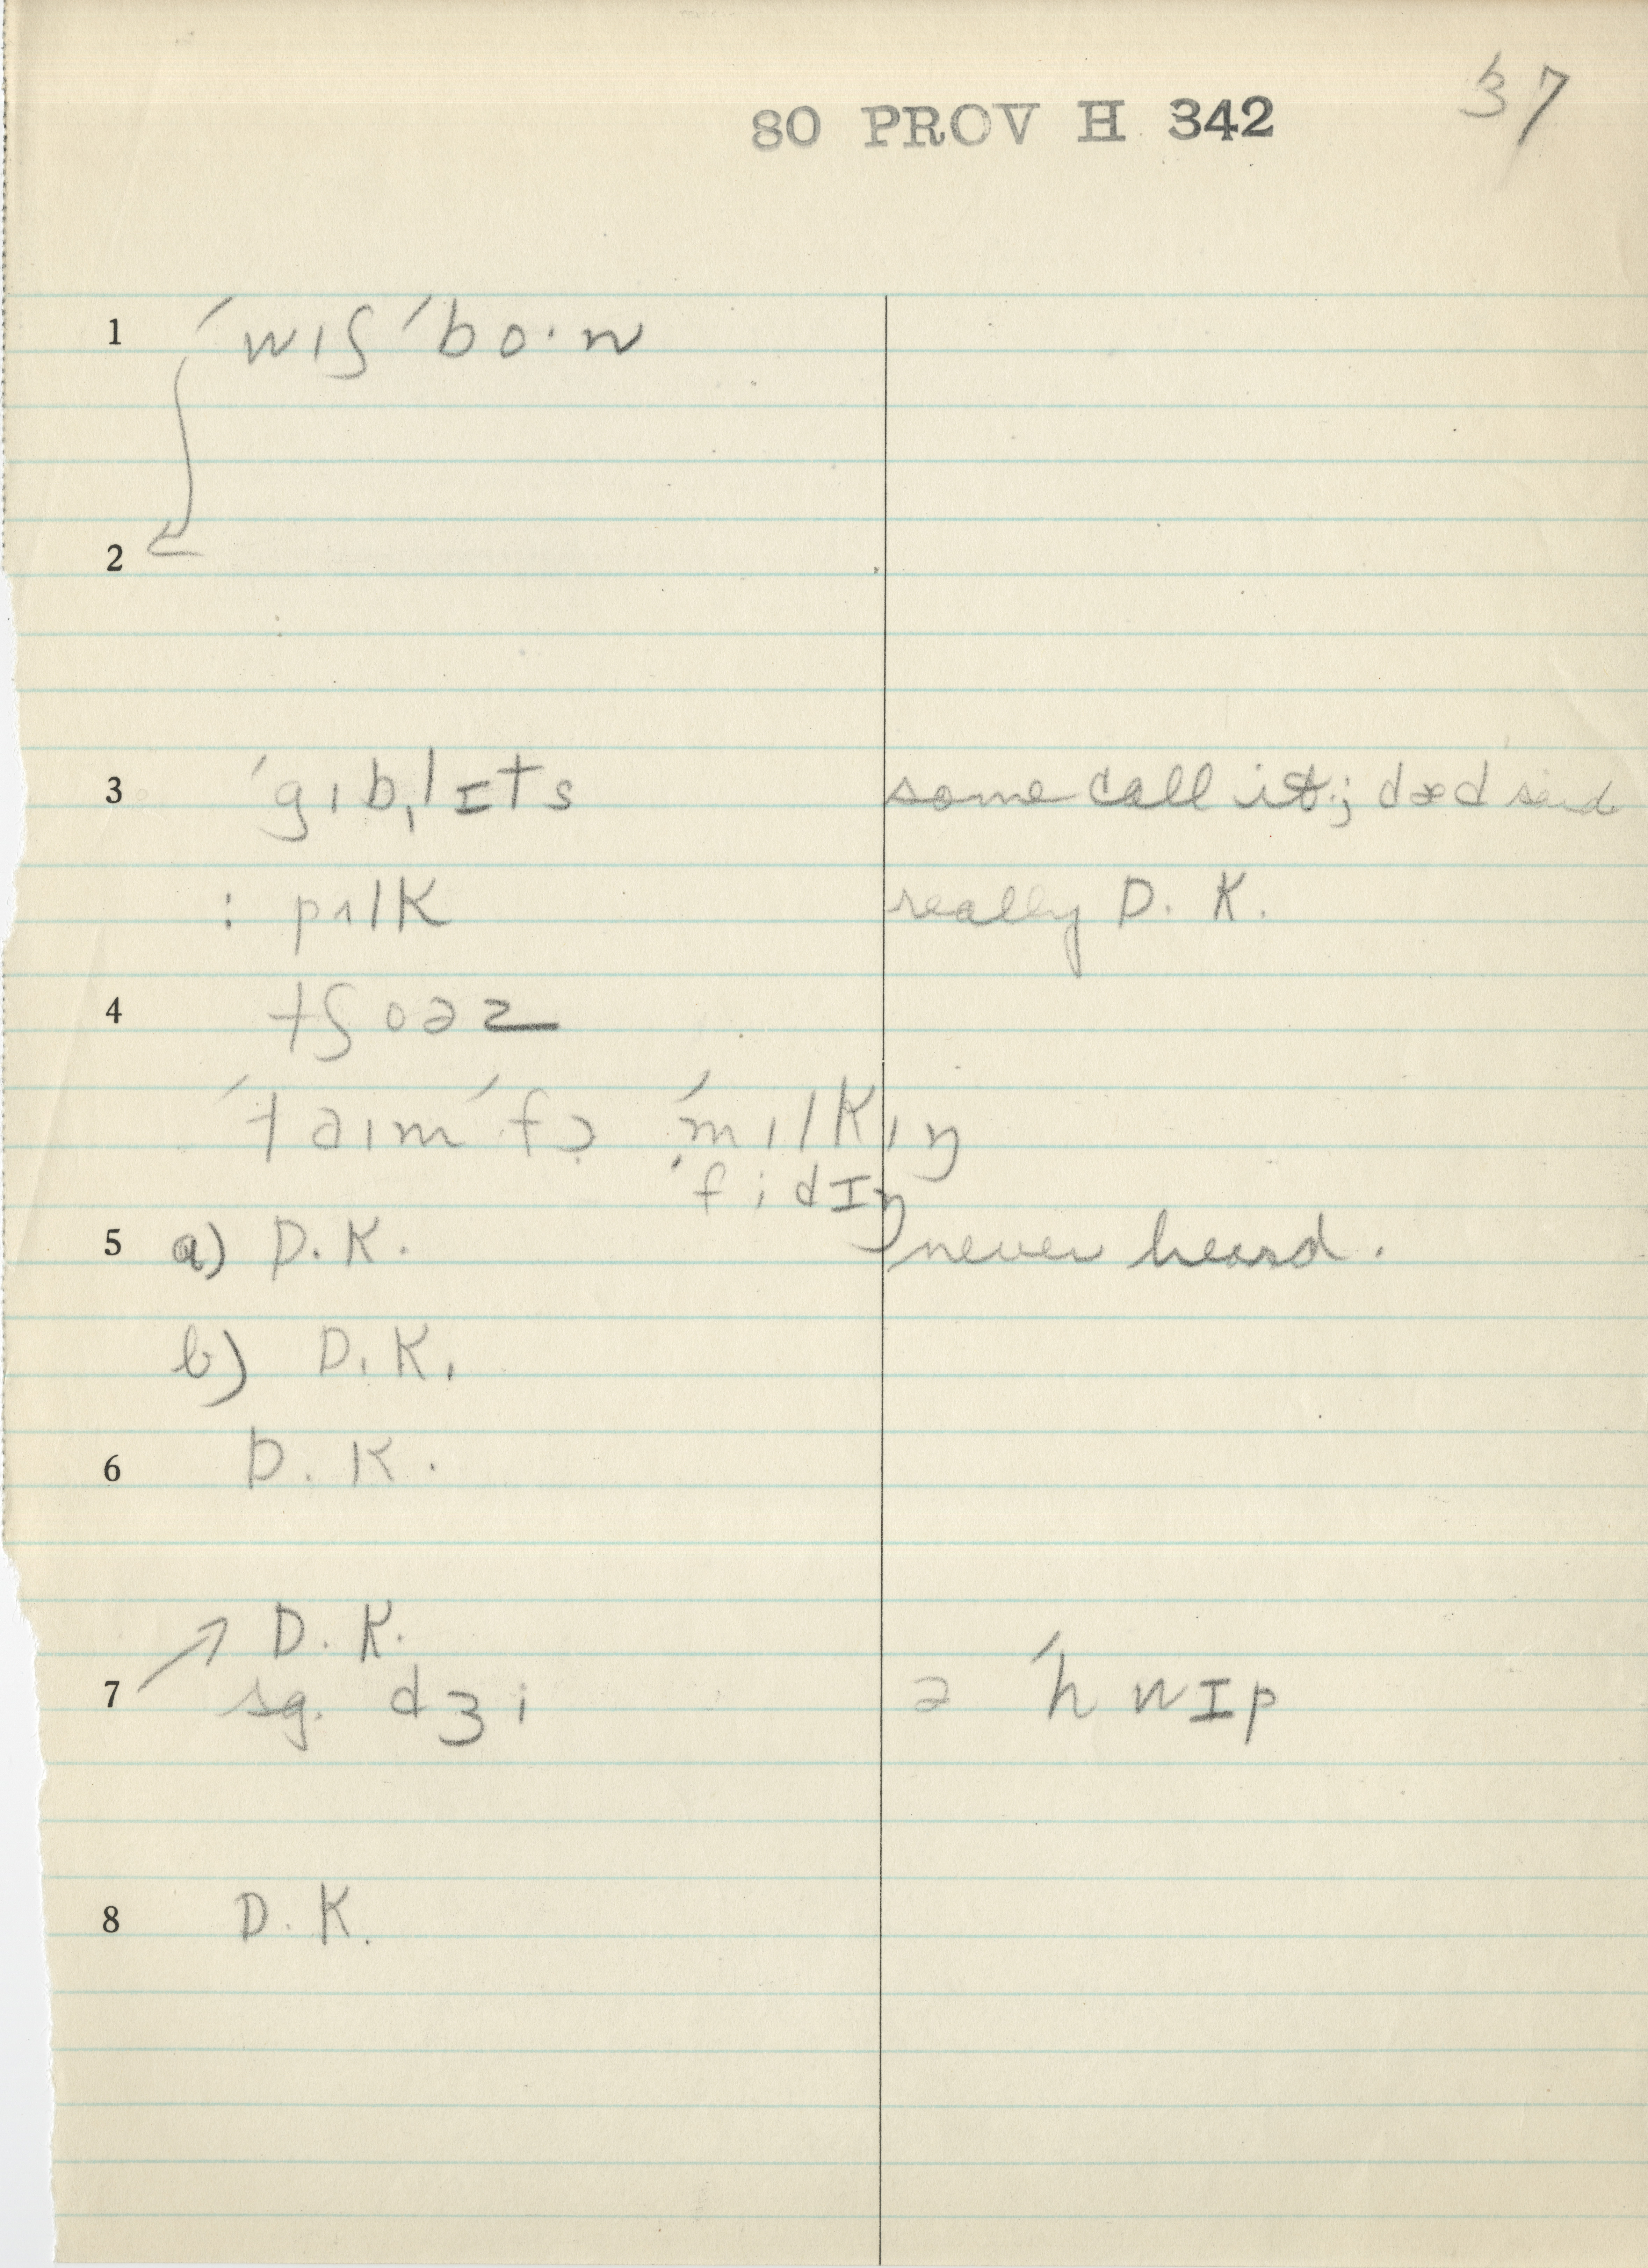 80 PROV H 342 37
1 ´wɪʃ ´bo·n
2
3 ´gɪbˌlɪts some call it; dæd said
: pʌlk really D. K.
4 tʃoəz
´taɪm ´fɔ ´mɪlkɪŋ
´fidɪŋ
5 a) D. K. never heard.
b) D. K.
6 D. K.
D. K.
7 sg. dʒi ə ´hwɪp
8 D. K.